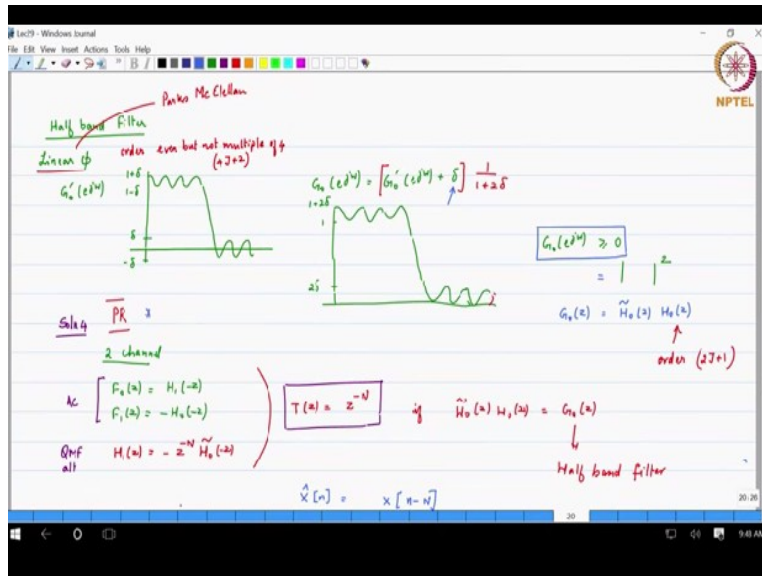 Lec29 - Windows Journal
File Edit View Insert Actions Tools Help
B I
NPTEL
Parks McClellan
Half band Filter
Linear ϕ order even but not multiple of 4
(4J+2)
G₀'(e^jω) 1+δ
1-δ
δ
-δ
G₀(e^jω) = [G₀'(e^jω) + δ] 1/(1+2δ)
1+2δ
1
2δ
G₀(e^jω) ≥ 0
= | |²
G₀(z) = H̃₀(z) H₀(z)
order (2J+1)
Soln 4 PR
2 channel
AC F₀(z) = H₁(-z)
F₁(z) = -H₀(-z)
QMF alt H₁(z) = - z^-N H̃₀(-z)
T(z) = z^-N if H̃₀(z) H₀(z) = G₀(z)
Half band filter
x̂[n] = x[n-N]
20:26
20
9:48 AM